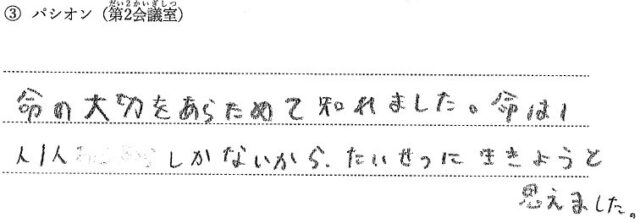 ③ パシオン（第2会議室）
だい2かいぎしつ
命の大切をあらためて知れました。命は1
人1人しかないから、たいせつに生きようと
思えました。